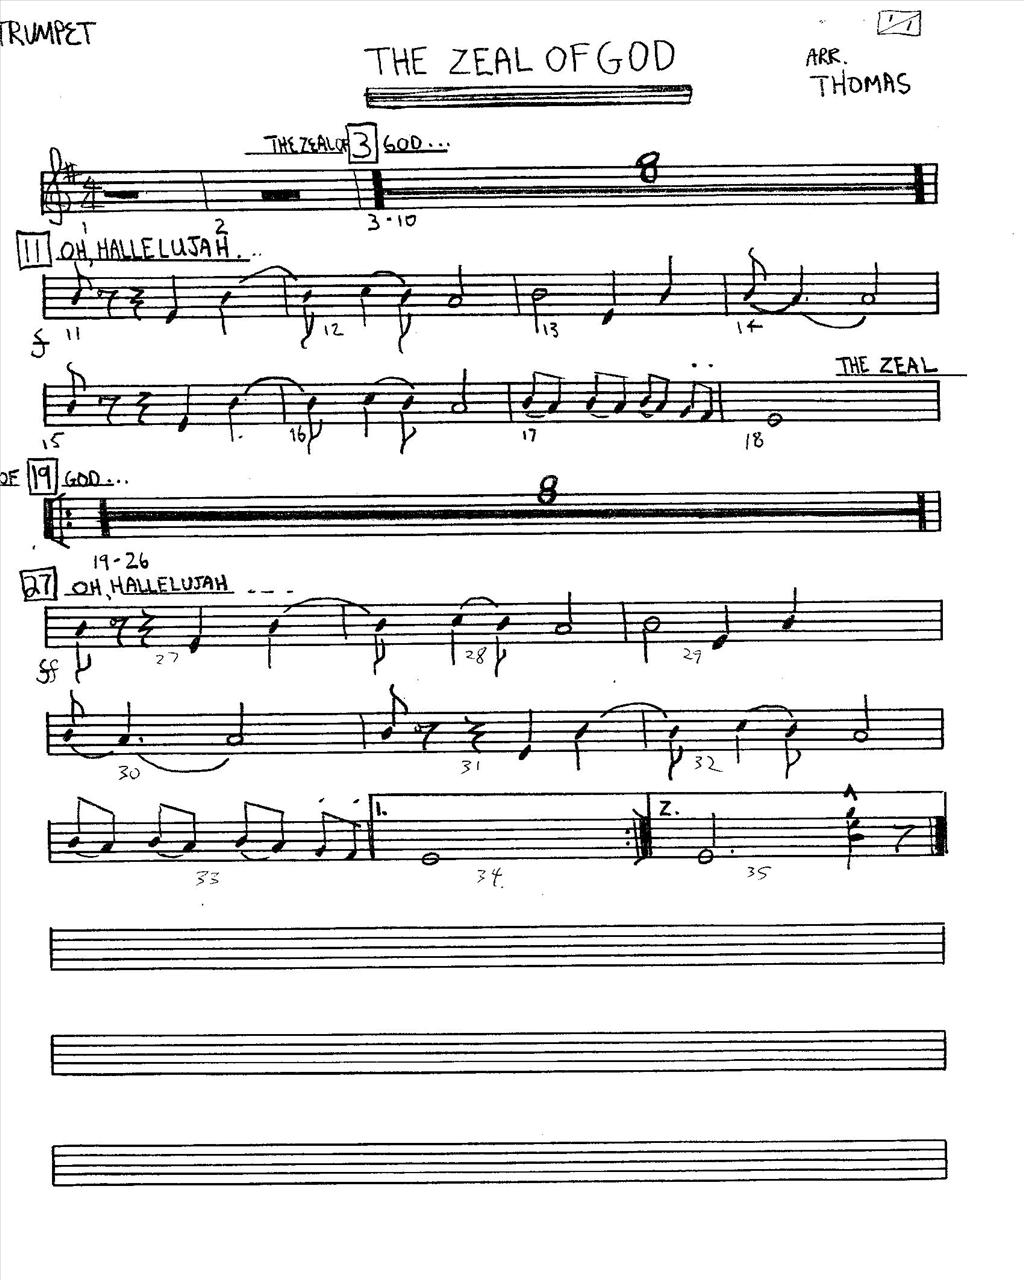 TRUMPET
1/1
THE ZEAL OF GOD
ARR.
THOMAS
THE ZEAL OF 3 GOD...
4
4
8
1 2 3-10
11 OH, HALLELUJAH...
f 11 12 13 14
THE ZEAL
15 16 17 18
OF 19 GOD...
8
19-26
27 OH, HALLELUJAH ---
ff 27 28 29
30 31 32
1. 2.
33 34. 35